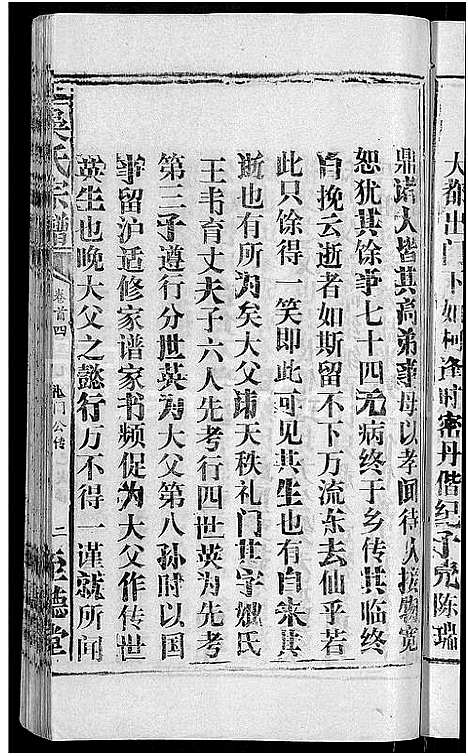 大都出门下如柯逢时密丹偕纪子尧陈瑞
鼎诸人皆其高弟事母以孝闻待人接物宽
恕犹其馀事七十四无病终于乡传其临终
自挽云逝者如斯留不下万流东去仙乎若
此只馀得一笑即此可见其生也有自来其
逝也有所为矣大父讳天秩礼门其字嫂氏
王韦育丈夫子六人先考行四世英为先考
第三子遵行分世英为大父第八孙时以国
事留沪适修家谱家书频促为大父作传世
英生也晚大父之懿行万不得一谨就所闻
吴氏宗谱
卷首四
礼门公传
二
至德堂